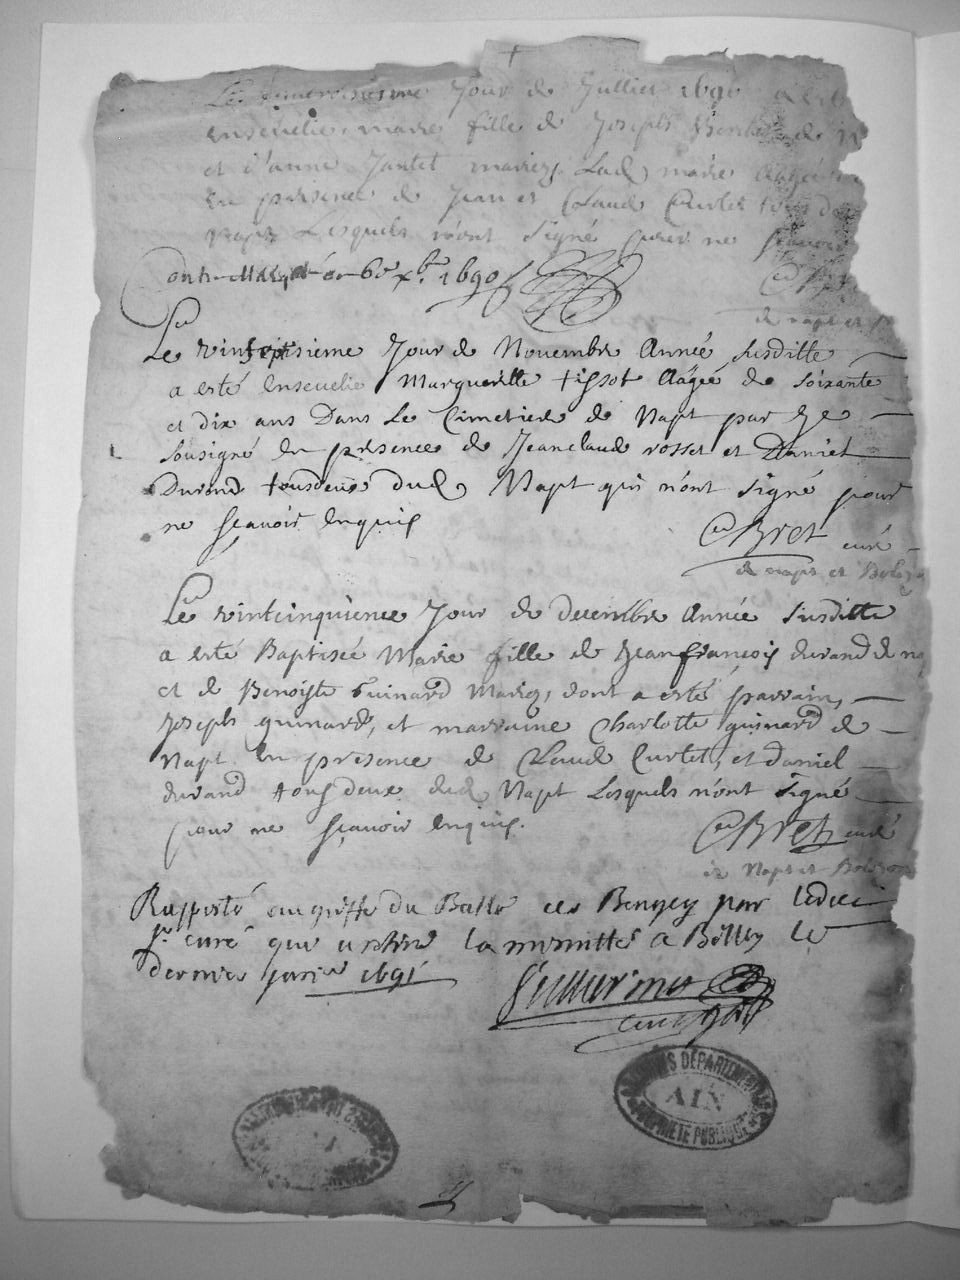 Jour de Juillet 1690 a esté
ensevelie marie fille de Joseph
et d'anne Jantet mariez Lad marie Aagée
En presence de Jean et Claude Curlet tous d
Napt Lesquels n'ont signé pour ne sçavoir
1690
de napt et
Le vintseptisieme Jour de Novembre Année susditte
a esté Ensevelie Margueritte tissot Aagée de soixante
et dix ans Dans Le Cimetiere de Napt par Je
Sousigné En presence de Jeanclaude rosset et Daniel
Durand tousdeux dud Napt qui n'ont signé pour
ne sçavoir Enquis
Bret curé
de napt et
Le vintcinquieme Jour de decembre Année susditte
a esté Baptisée Marie fille de Jeanfrançois durand de na
et de Benoiste Guinard Mariez, dont a estés parrain,
Joseph guinard, et marraine Charlotte guinard de
Napt En presence de Claude Curlet, et daniel
durand tous deux dud Napt Lesquels n'ont signé
pour ne sçavoir Enquis.
Bret curé
de Napt et
Rapporté au greffe du Baill par ledict
Sr curé qui a retiré la minutte a Belley le
dernier 1691
ARCHIVES DÉPARTEMENTALES
AIN
PROPRIÉTÉ PUBLIQUE